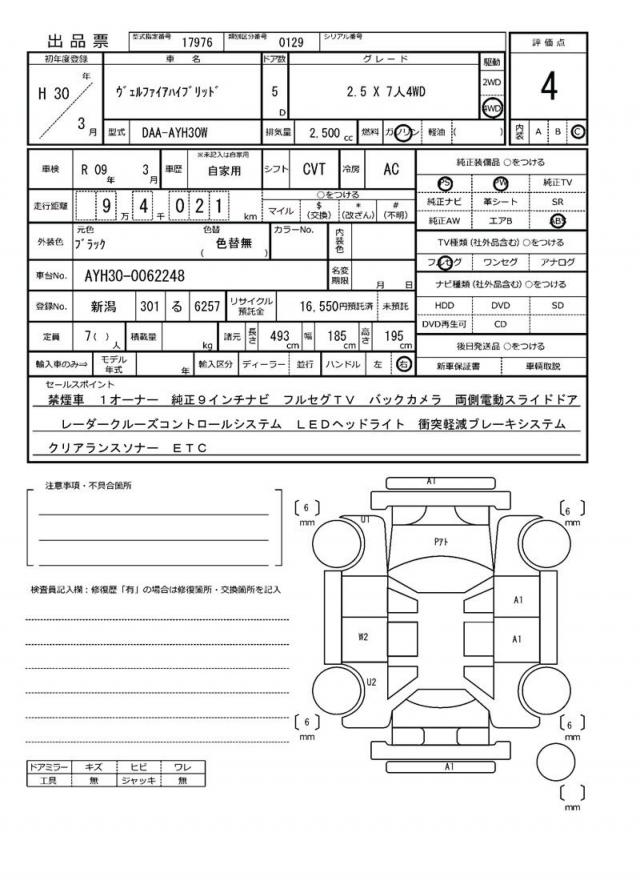 出品票 型式指定番号 17976 類別区分番号 0129 シリアル番号
初年度登録 車名 ドア数 グレード 駆動 評価点
H 30 年 3 月 ヴェルファイアハイブリッド 5 D 2.5 X 7人4WD 2WD 4WD 4
型式 DAA-AYH30W 排気量 2,500 cc 燃料 ガソリン 軽油 ( ) 内装 A B C
車検 R 09 年 3 月 車歴 ※未記入は自家用 自家用 シフト CVT 冷房 AC
純正装備品 ○をつける
PS PW 純正TV
走行距離 9 万 4 千 0 2 1 km ○をつける マイル $ (交換) * (改ざん) # (不明)
純正ナビ 革シート SR
純正AW エアB ABS
外装色 元色 ブラック 色替 ( 色替無 ) カラーNo. 内装色
TV種類 (社外品含む) ○をつける
フルセグ ワンセグ アナログ
車台No. AYH30-0062248 名変期限 月 日
ナビ種類 (社外品含む) ○をつける
登録No. 新潟 301 る 6257 リサイクル預託金 16,550円預託済 未預託
HDD DVD SD
DVD再生可 CD
定員 7( ) 人 積載量 kg 諸元 長さ 493 cm 幅 185 cm 高さ 195 cm
後日発送品 ○をつける
輸入車のみ⇨ モデル年式 年 輸入区分 ディーラー 並行 ハンドル 左 右
新車保証書 車輌取説
セールスポイント
禁煙車 1オーナー 純正9インチナビ フルセグTV バックカメラ 両側電動スライドドア
レーダークルーズコントロールシステム LEDヘッドライト 衝突軽減ブレーキシステム
クリアランスソナー ETC
注意事項・不具合箇所
検査員記入欄：修復歴「有」の場合は修復箇所・交換箇所を記入
A1
[ 6 ] mm
[ 6 ] mm
U1
Pアト
A1
W2
A1
U2
[ 6 ] mm
[ 6 ] mm
A1
[ ] mm
ドアミラー キズ ヒビ ワレ
工具 無 ジャッキ 無